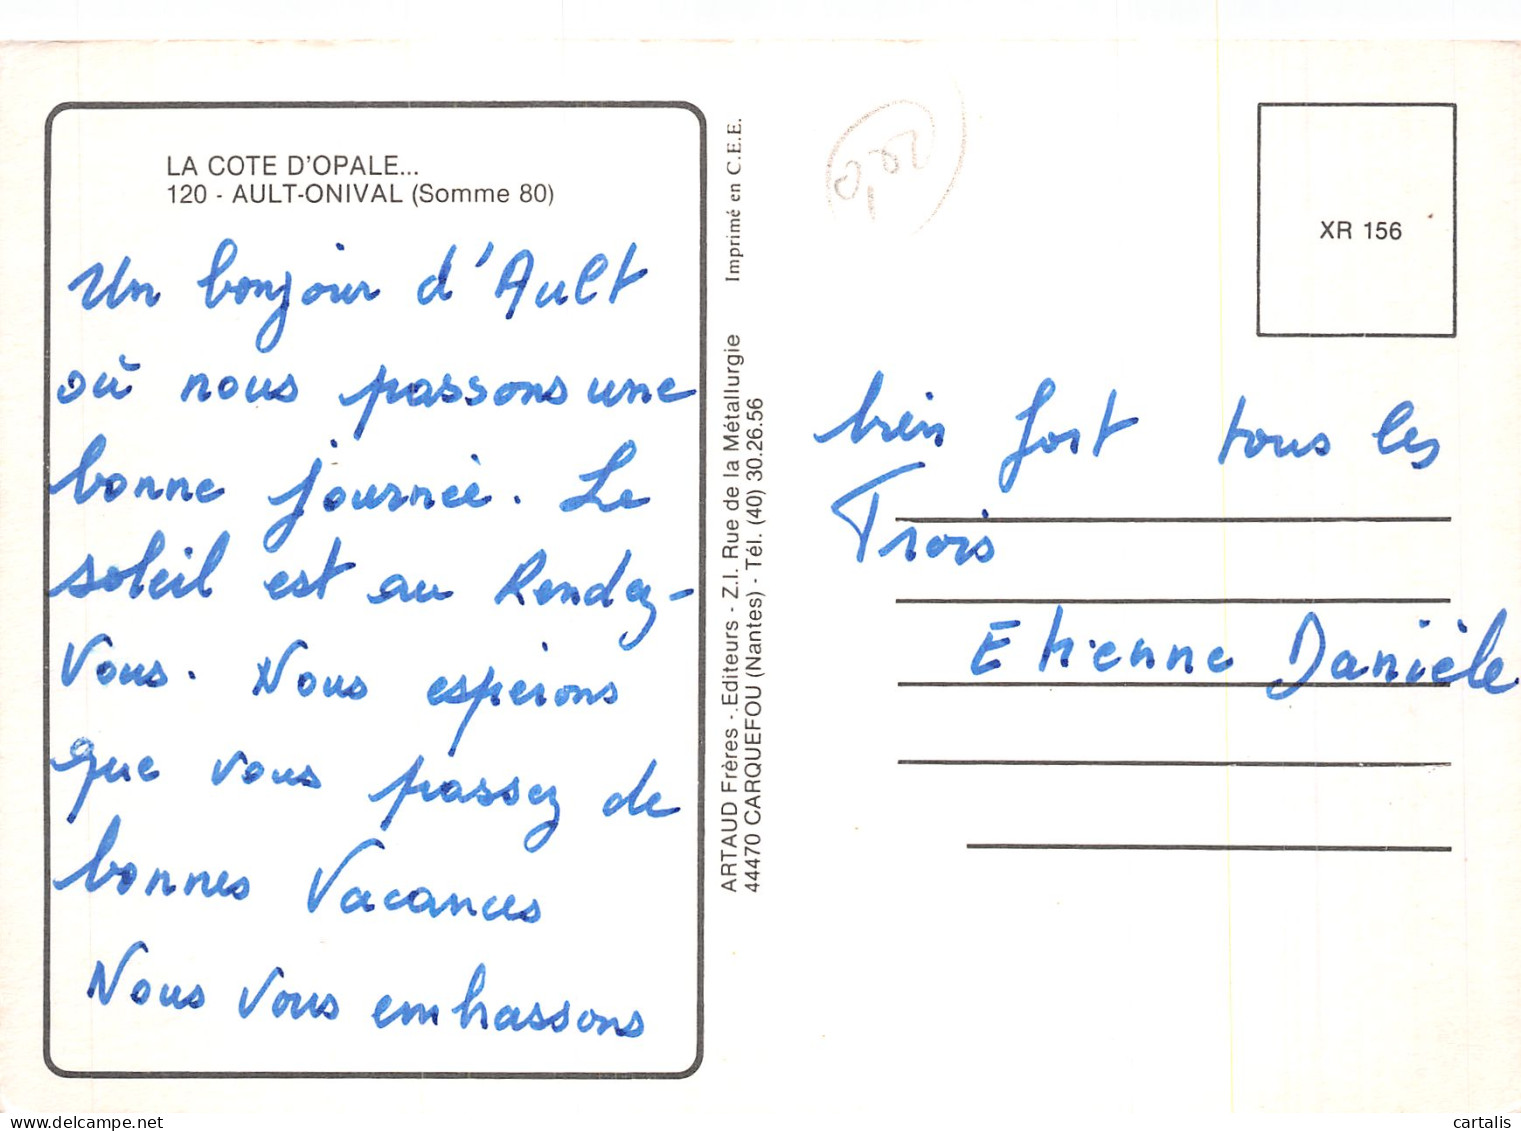 LA COTE D'OPALE...
120 - AULT-ONIVAL (Somme 80)
Un bonjour d'Ault
où nous passons une
bonne journée. Le
soleil est au Rendez-
Vous. Nous espérons
que vous passez de
bonnes Vacances
Nous Vous embrassons
Imprimé en C.E.E.
ARTAUD Frères - Editeurs - Z.I. Rue de la Métallurgie
44470 CARQUEFOU (Nantes) - Tél. (40) 30.26.56
XR 156
bien fort tous les
Trois
Etienne Danièle
cartalis